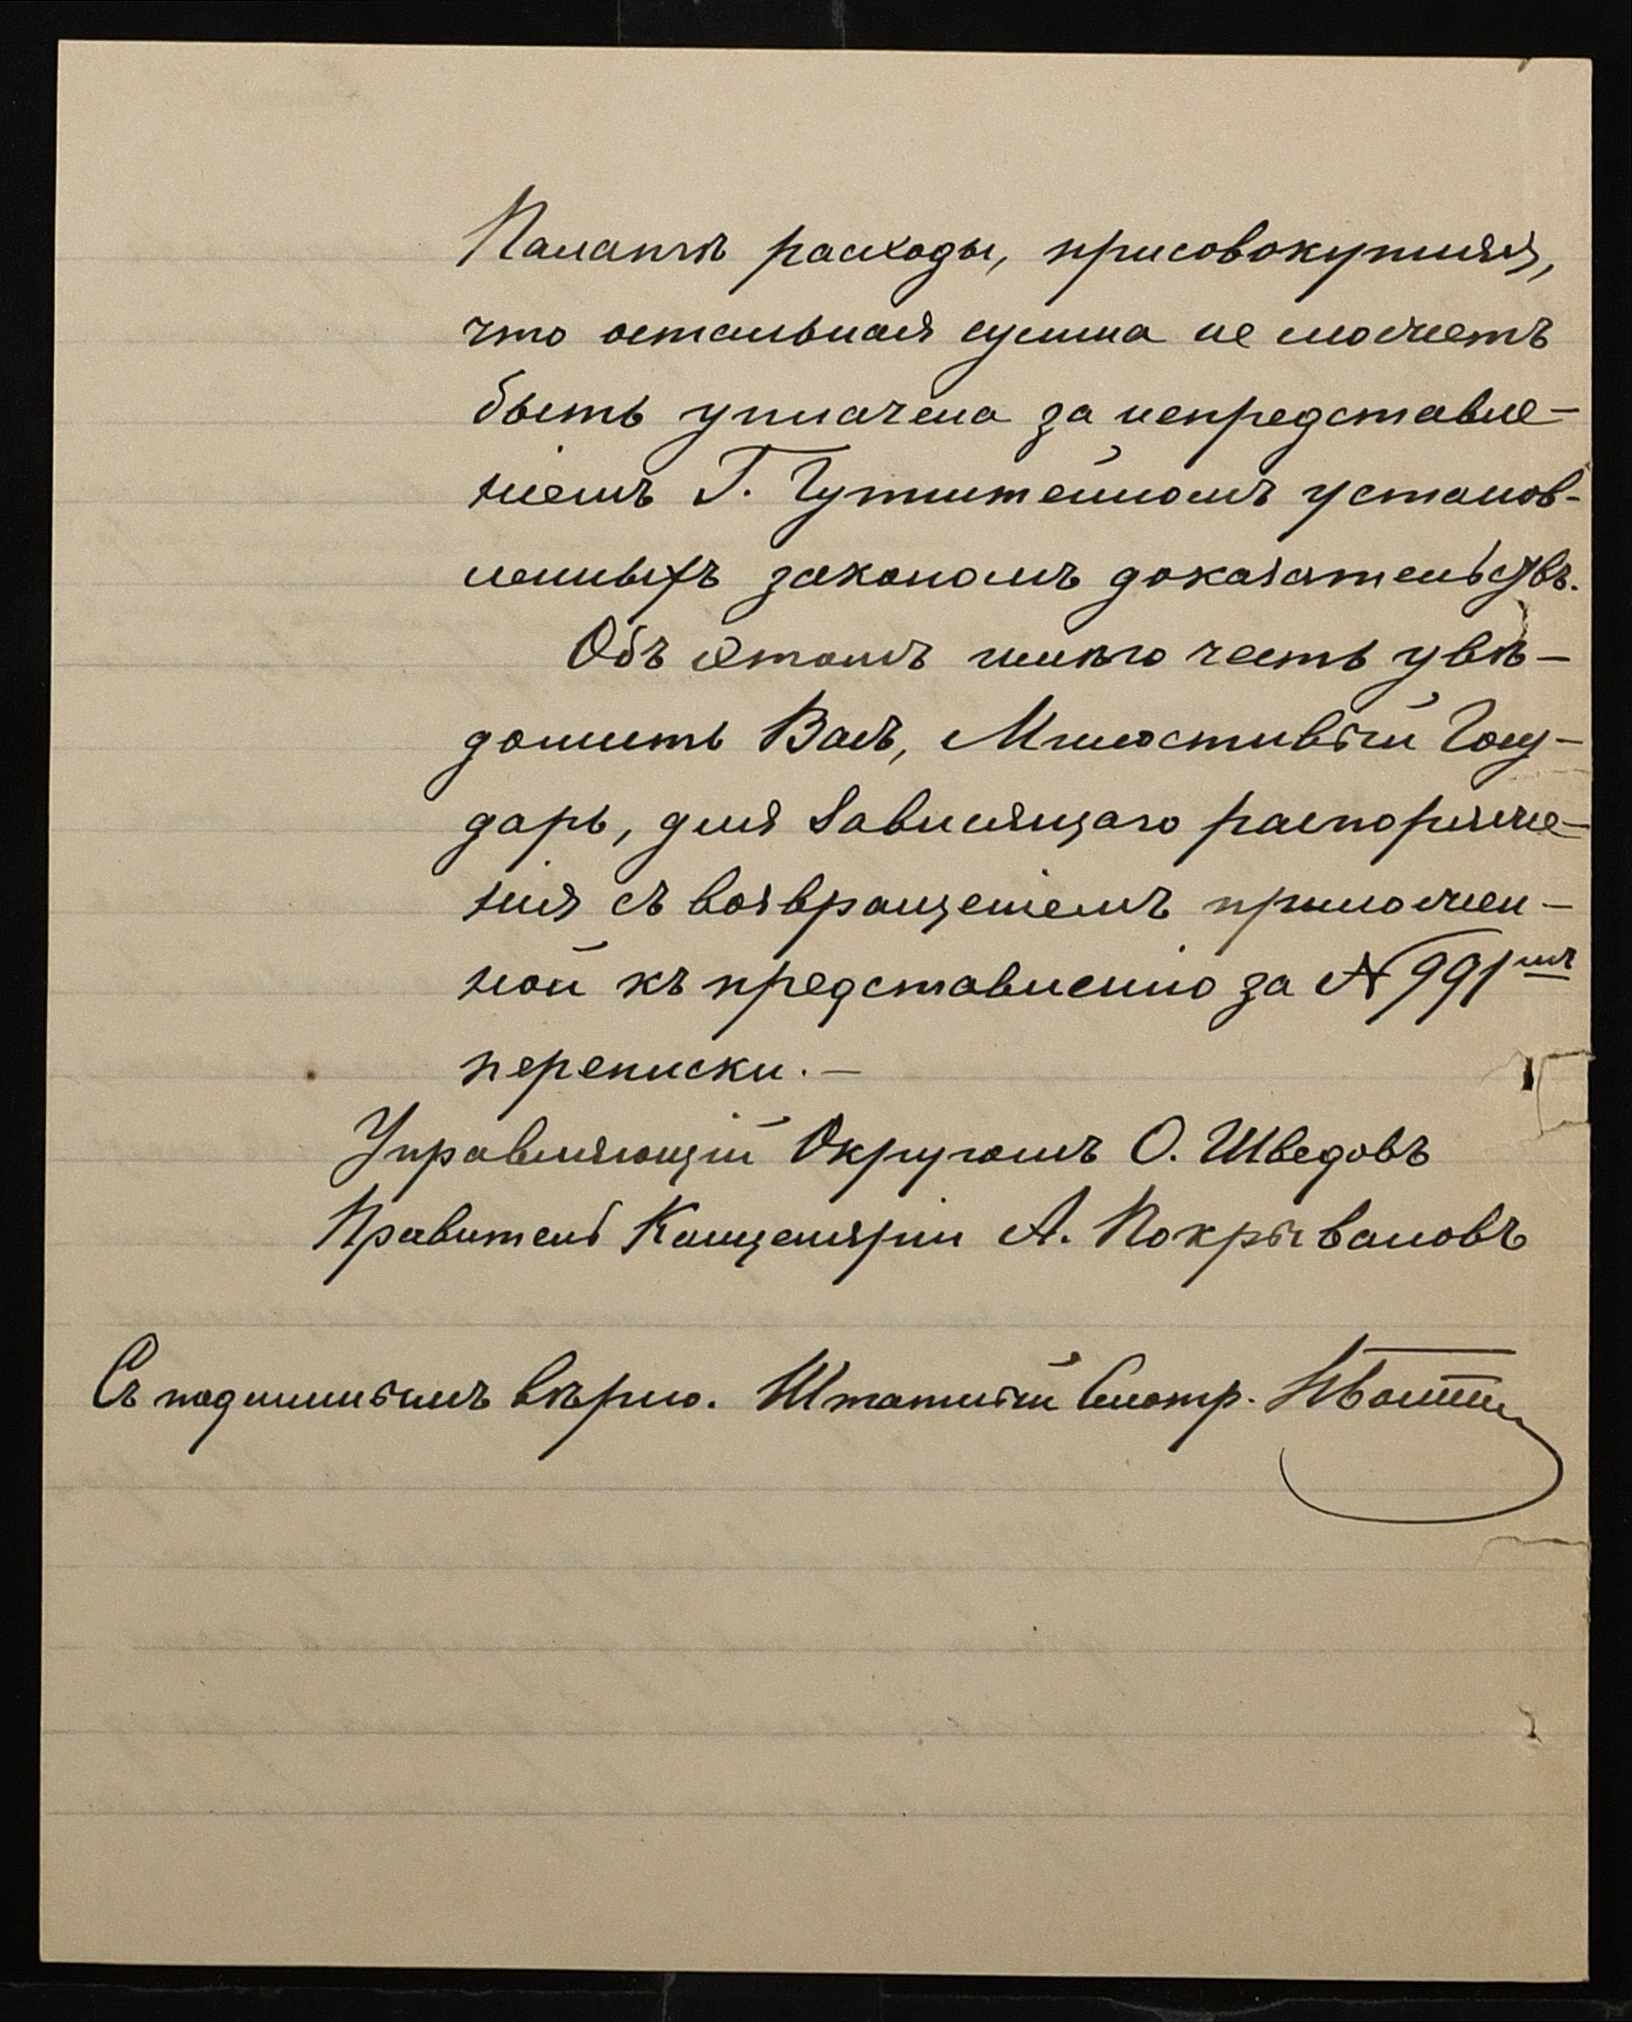 Палатѣ расходы, присовокупляя,
что остальная сумма не можетъ
быть уплачена за непредставле-
ніемъ Г. Гутштейномъ установ-
ленныхъ закономъ доказательствъ.
Объ этомъ имѣю честь увѣ-
домить Васъ, Милостивый Госу-
дарь, для зависящаго распоряже-
нія съ возвращеніемъ приложен-
ной къ представленію за № 991мъ
переписки. —
Управляющій Округомъ О. Шведовъ
Правитель Канцеляріи А. Покрывановъ
Съ подлиннымъ вѣрно. Штатный Смотр.